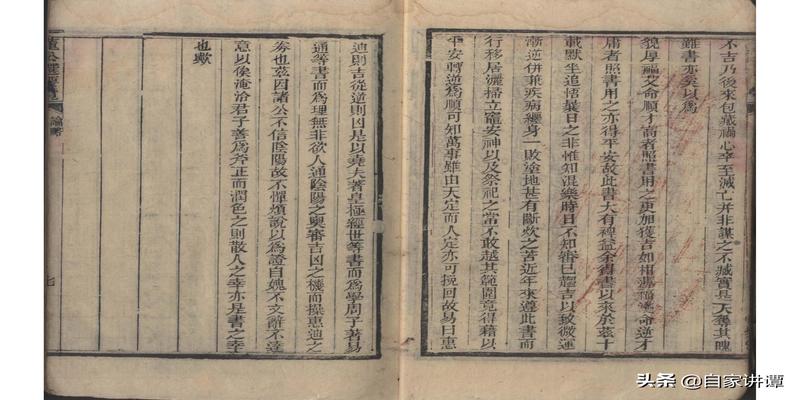 不吉乃後來包藏禍心幸至滅亡并非謀之不臧實是天奪其魄
難書亦奚以爲
貌厚福艾命順才高者照書用之更加獲吉如相薄福命逆才
庸者照書用之亦得平安故此書大有裨益余得書以來於茲十
載默坐追悟葉日之非惟知混樂時日不知審己趨吉以致微運
漸逆併兼疾病纏身一敗塗地甚有斷炊之苦近年來遵此書而
行移居灑掃立竈安神以及祭祀之當不敢越其範圍竟得藉以
平安轉逆爲順可知萬事雖由天定而人定亦可挽回故易曰惠
迪則吉從逆則凶是以堯夫著皇極經世等書而爲學周子著易
通等書而爲理無非欲人通陰陽之奧審吉凶之機而操惠迪之
劵也茲因諸公不信陰陽故不憚煩說以爲證自媿不文辭不達
意以俟淹洽君子善爲斧正而潤色之則散人之幸亦是書之幸
也歟
論畧
七
头条 @自家讲谭